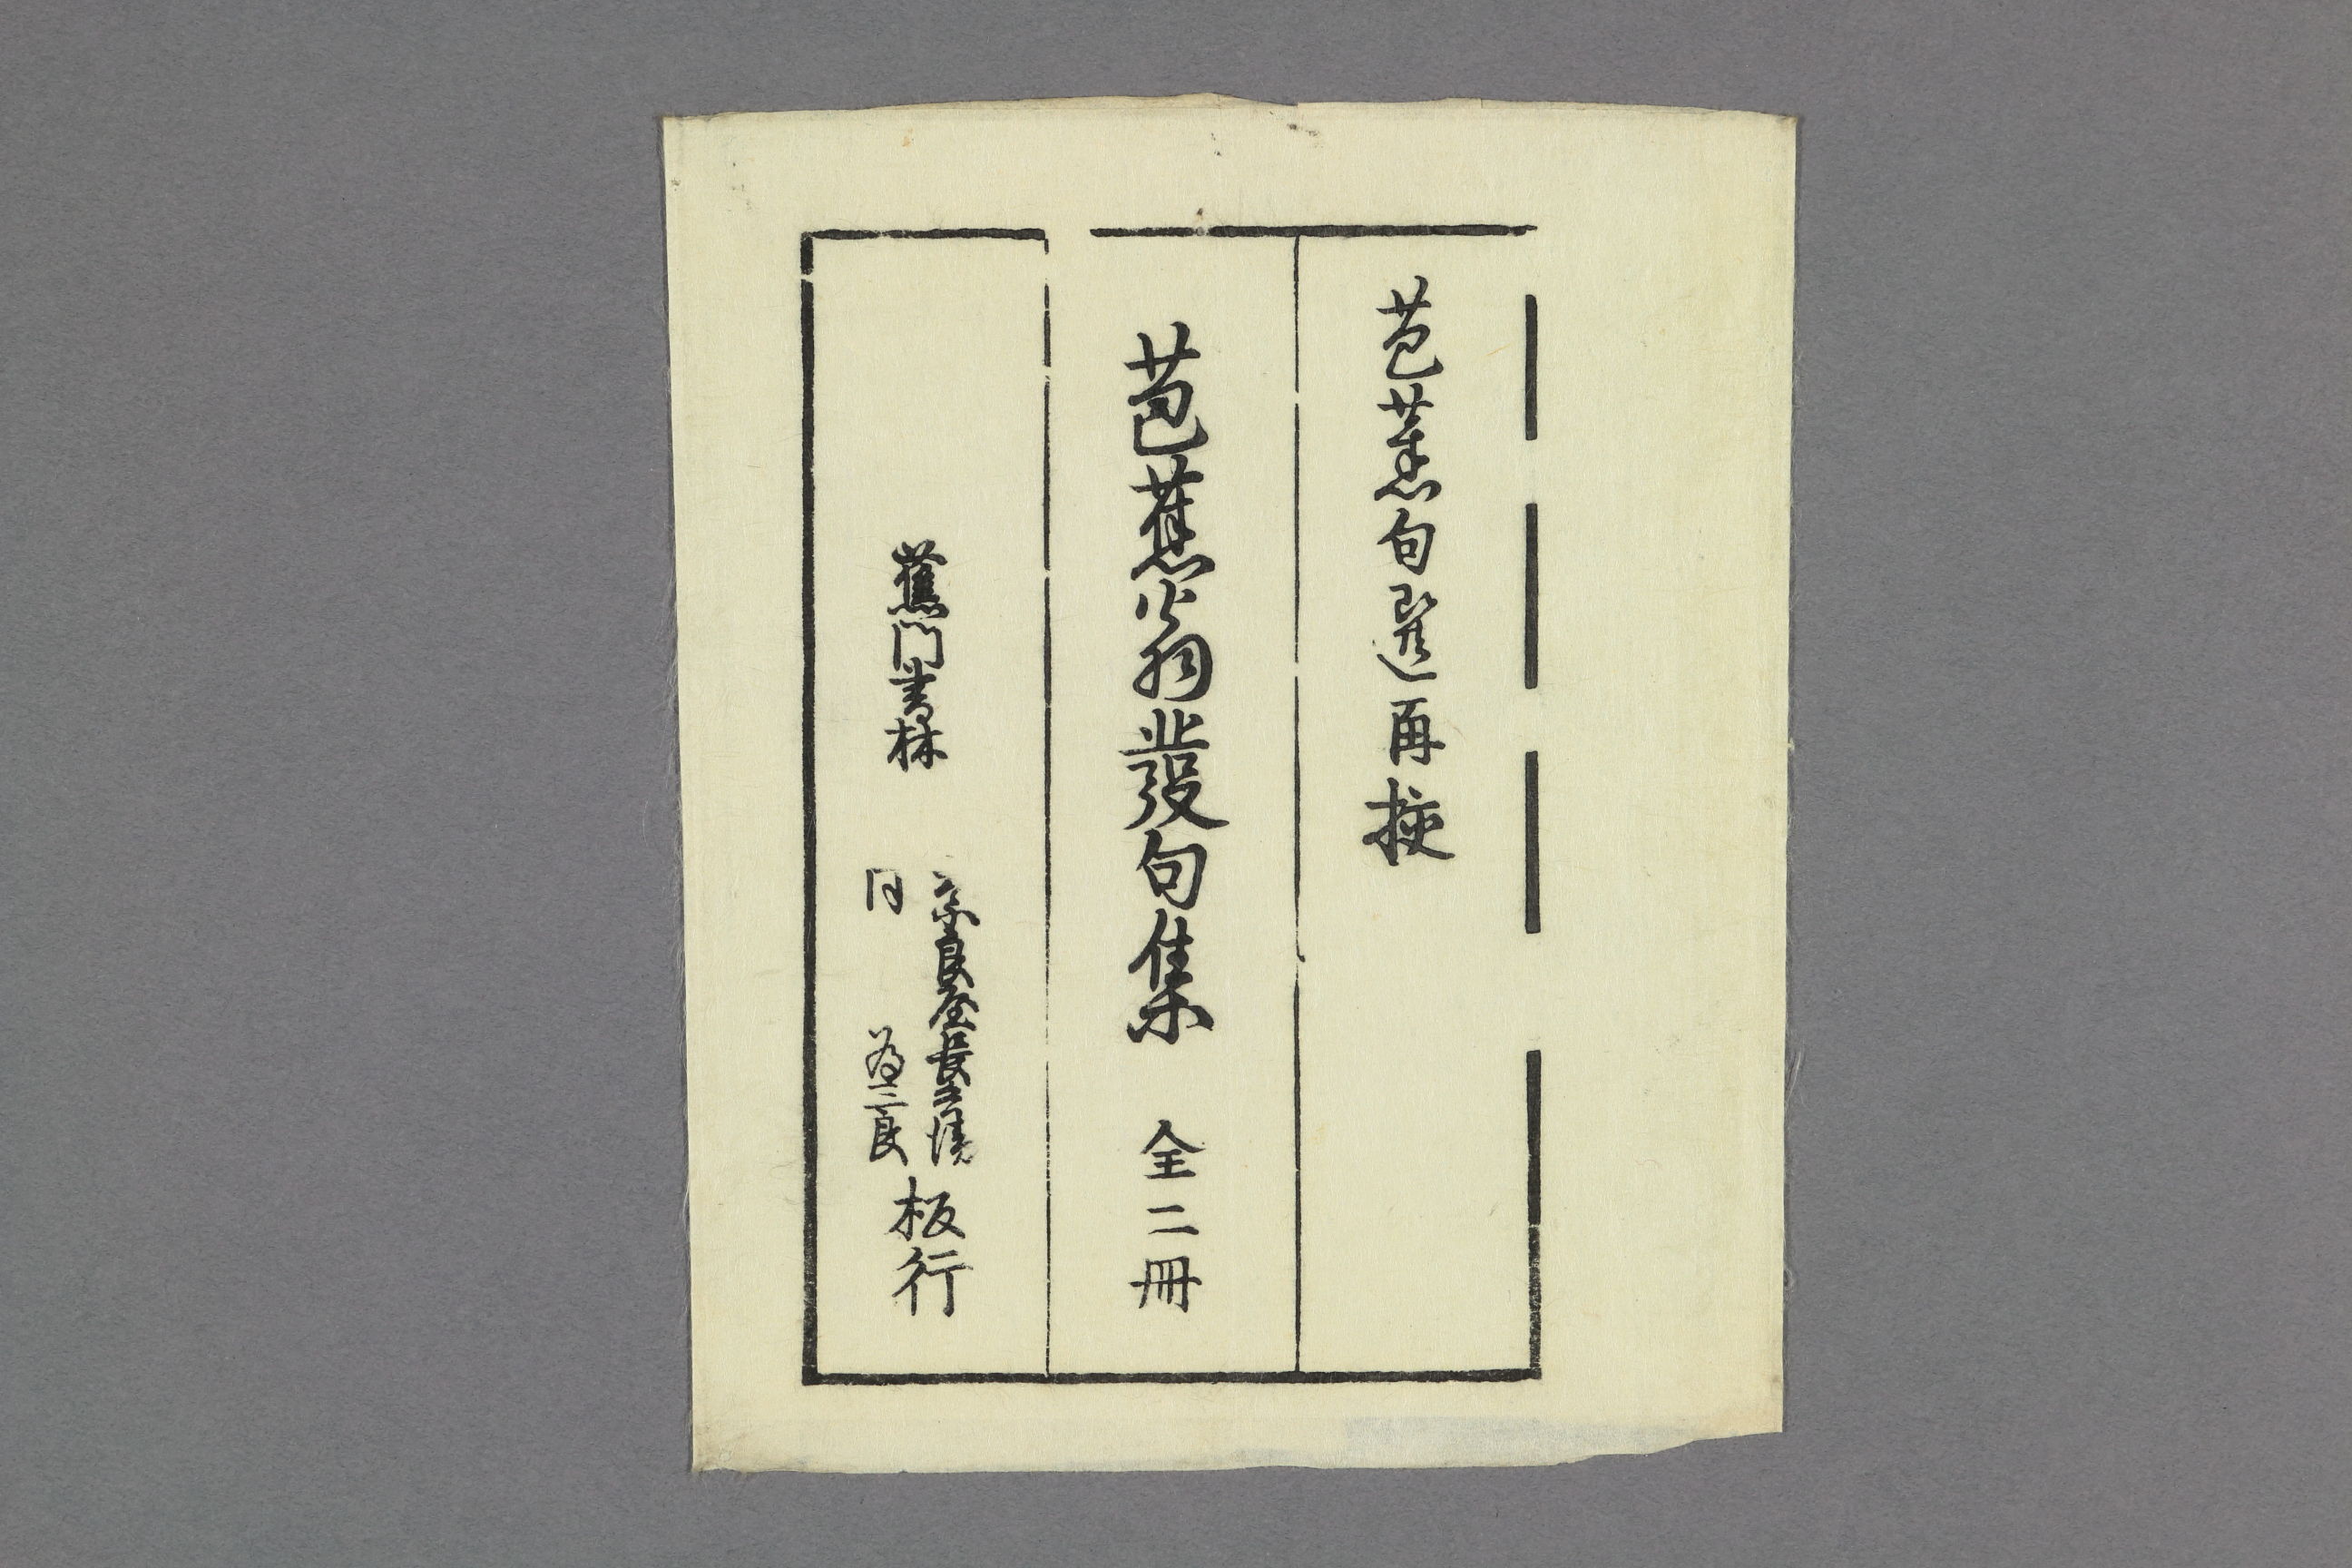 芭蕉句選再挍
芭蕉翁發句集 全二冊
蕉門書林
奈良屋長兵衛
同 為二良
板行